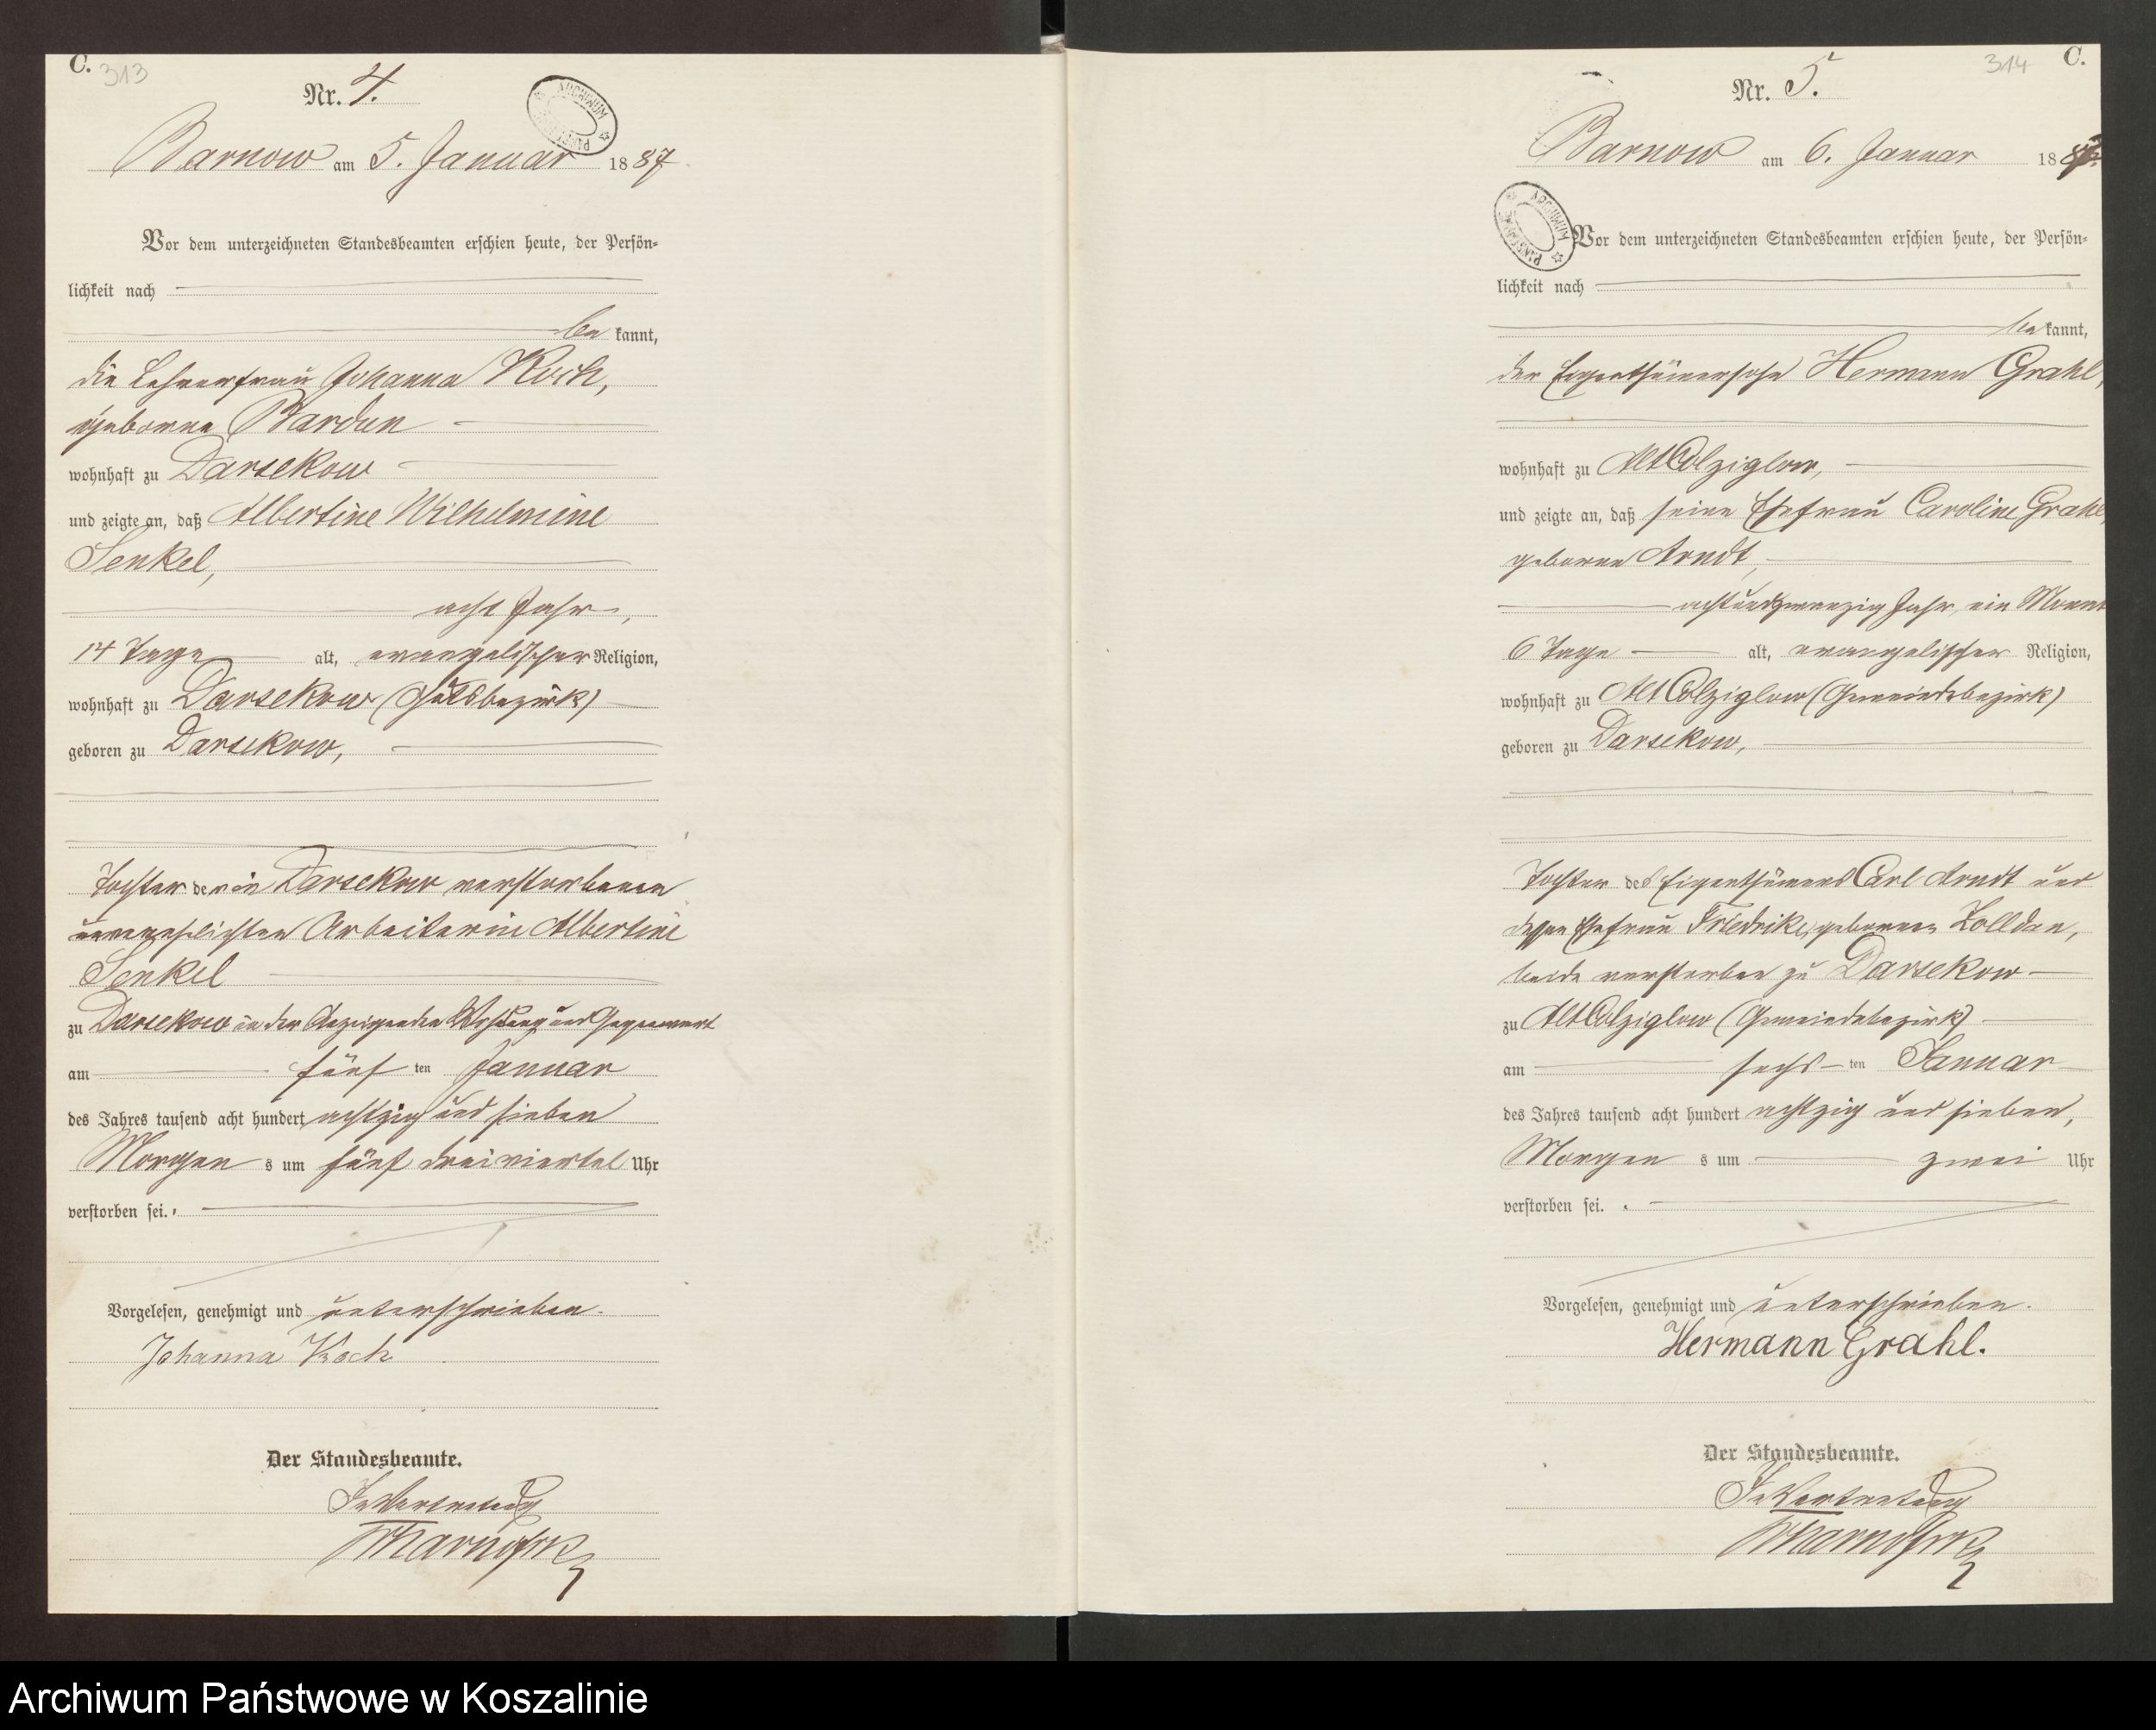 C. 313
Nr. 4.
ARCHIWUM
Barnow am 5. Januar 1887
Vor dem unterzeichneten Standesbeamten erschien heute, der Persön-
lichkeit nach
be kannt,
die Lehrerfrau Johanna Koch,
geborne Bardun
wohnhaft zu Darsekow
und zeigte an, daß Albertine Wilhelmine
Senkel,
acht Jahr,
14 Tage alt, evangelischer Religion,
wohnhaft zu Darsekow (Gutsbezirk)
geboren zu Darsekow,
Tochter der in Darsekow verstorbenen
unverehelichten Arbeiterin Albertine
Senkel
zu Darsekow in der Anzeigenden Wohnung und Gegenwart
am fünf ten Januar
des Jahres tausend acht hundert achtzig und sieben
Morgen s um fünf dreiviertel Uhr
verstorben sei.
Vorgelesen, genehmigt und unterschrieben.
Johanna Koch
Der Standesbeamte.
In Vertretung
314 C.
Nr. 5.
Barnow am 6. Januar 1887.
ARCHIWUM
Vor dem unterzeichneten Standesbeamten erschien heute, der Persön-
lichkeit nach
be kannt,
der Eigenthümersohn Hermann Grahl,
wohnhaft zu Alt Colziglow,
und zeigte an, daß seine Ehefrau Caroline Grahl,
geborene Arndt,
achtundzwanzig Jahr, ein Monat
6 Tage alt, evangelischer Religion,
wohnhaft zu Alt Colziglow (Gemeindebezirk)
geboren zu Darsekow,
Tochter des Eigenthümers Carl Arndt und
dessen Ehefrau Friedrike, geborenen Zolldan,
beide verstorben zu Darsekow
zu Alt Colziglow (Gemeindebezirk)
am sechs ten Januar
des Jahres tausend acht hundert achtzig und sieben,
Morgen s um zwei Uhr
verstorben sei.
Vorgelesen, genehmigt und unterschrieben.
Hermann Grahl.
Der Standesbeamte.
In Vertretung
Archiwum Państwowe w Koszalinie